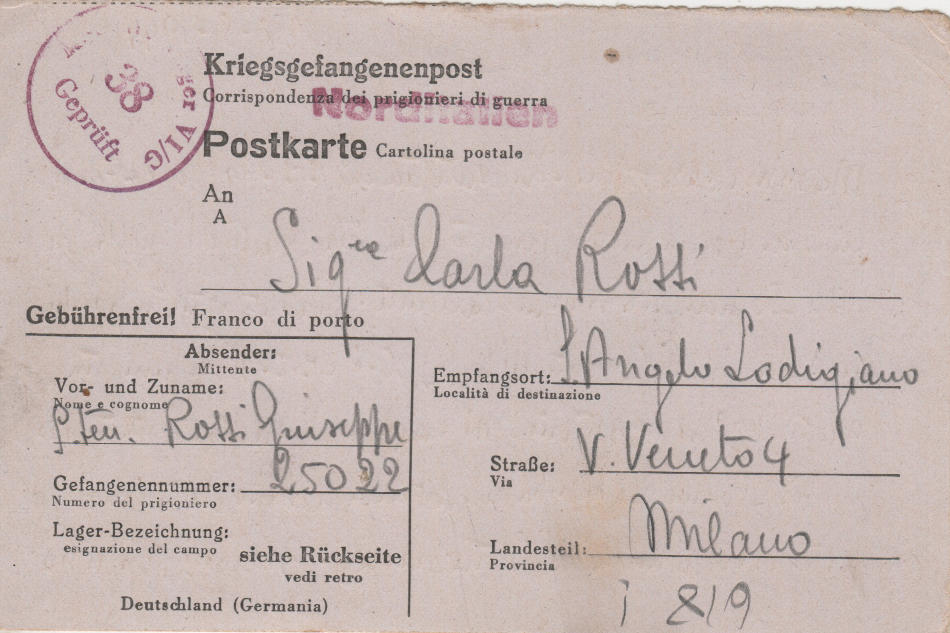 38
Geprüft
VI/G
Kriegsgefangenenpost
Corrispondenza dei prigionieri di guerra
Norditalien
Postkarte Cartolina postale
An
A
Sig.ra Carla Rossi
Gebührenfrei! Franco di porto
Absender:
Mittente
Vor- und Zuname:
Nome e cognome
S.Ten. Rossi Giuseppe
Gefangenennummer: 25022
Numero del prigioniero
Lager-Bezeichnung:
esignazione del campo
siehe Rückseite
vedi retro
Deutschland (Germania)
Empfangsort: S. Angelo Lodigiano
Località di destinazione
Straße: V. Veneto 4
Via
Landesteil: Milano
Provincia
819